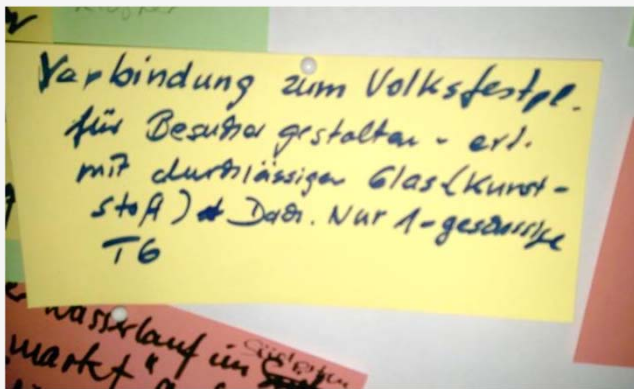 Verbindung zum Volksfestpl.
für Besucher gestalten - evt.
mit durchlässigen Glas (Kunst-
stoff) Dach. Nur 1-geschossige
TG
Wasserlauf im
markt"